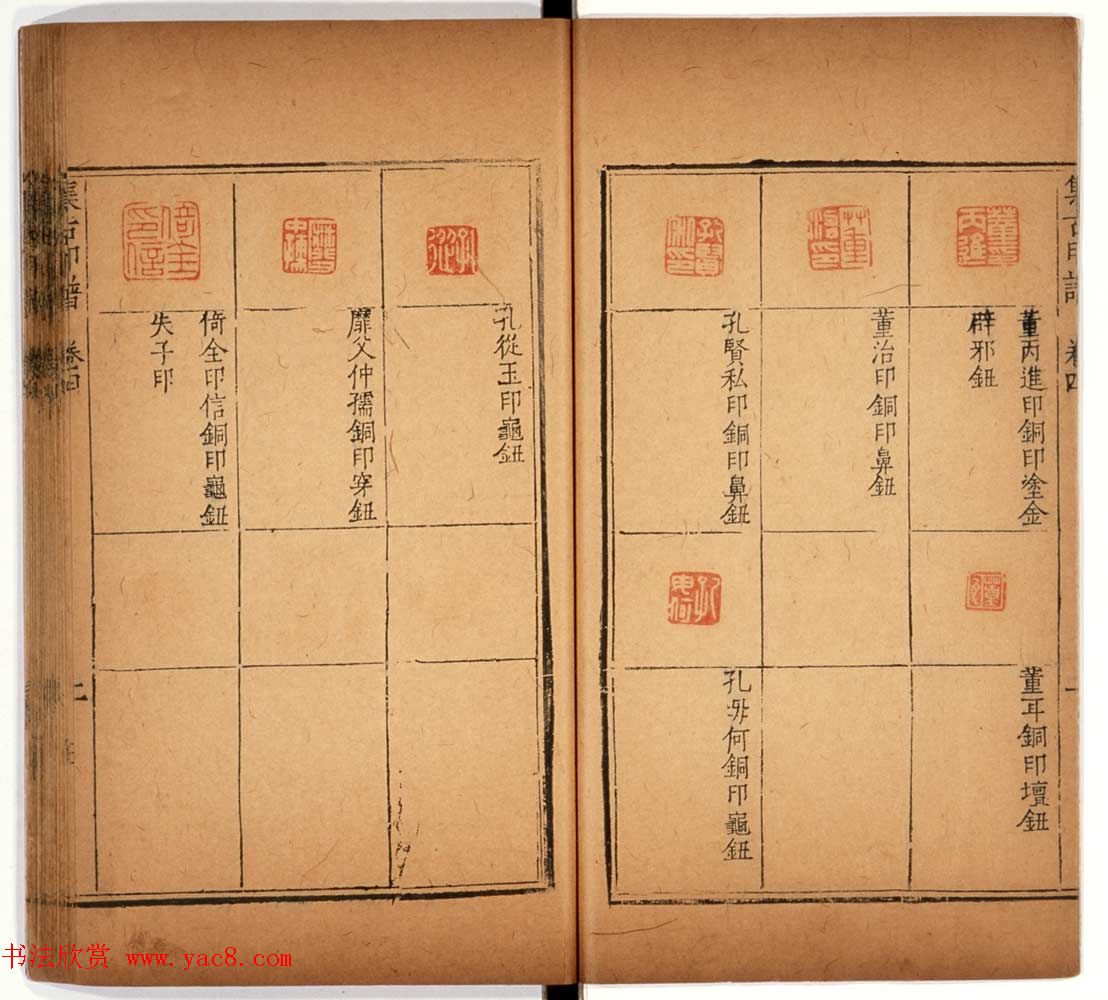 集古印譜 卷四
董丙進印銅印塗金
辟邪鈕
董治印銅印鼻鈕
孔賢私印銅印鼻鈕
董耳銅印壇鈕
孔 何銅印龜鈕
孔從玉印龜鈕
靡父仲孺銅印穿鈕
倚全印信銅印龜鈕
失子印
集古印譜 卷四
二
书法欣赏 www.yac8.com